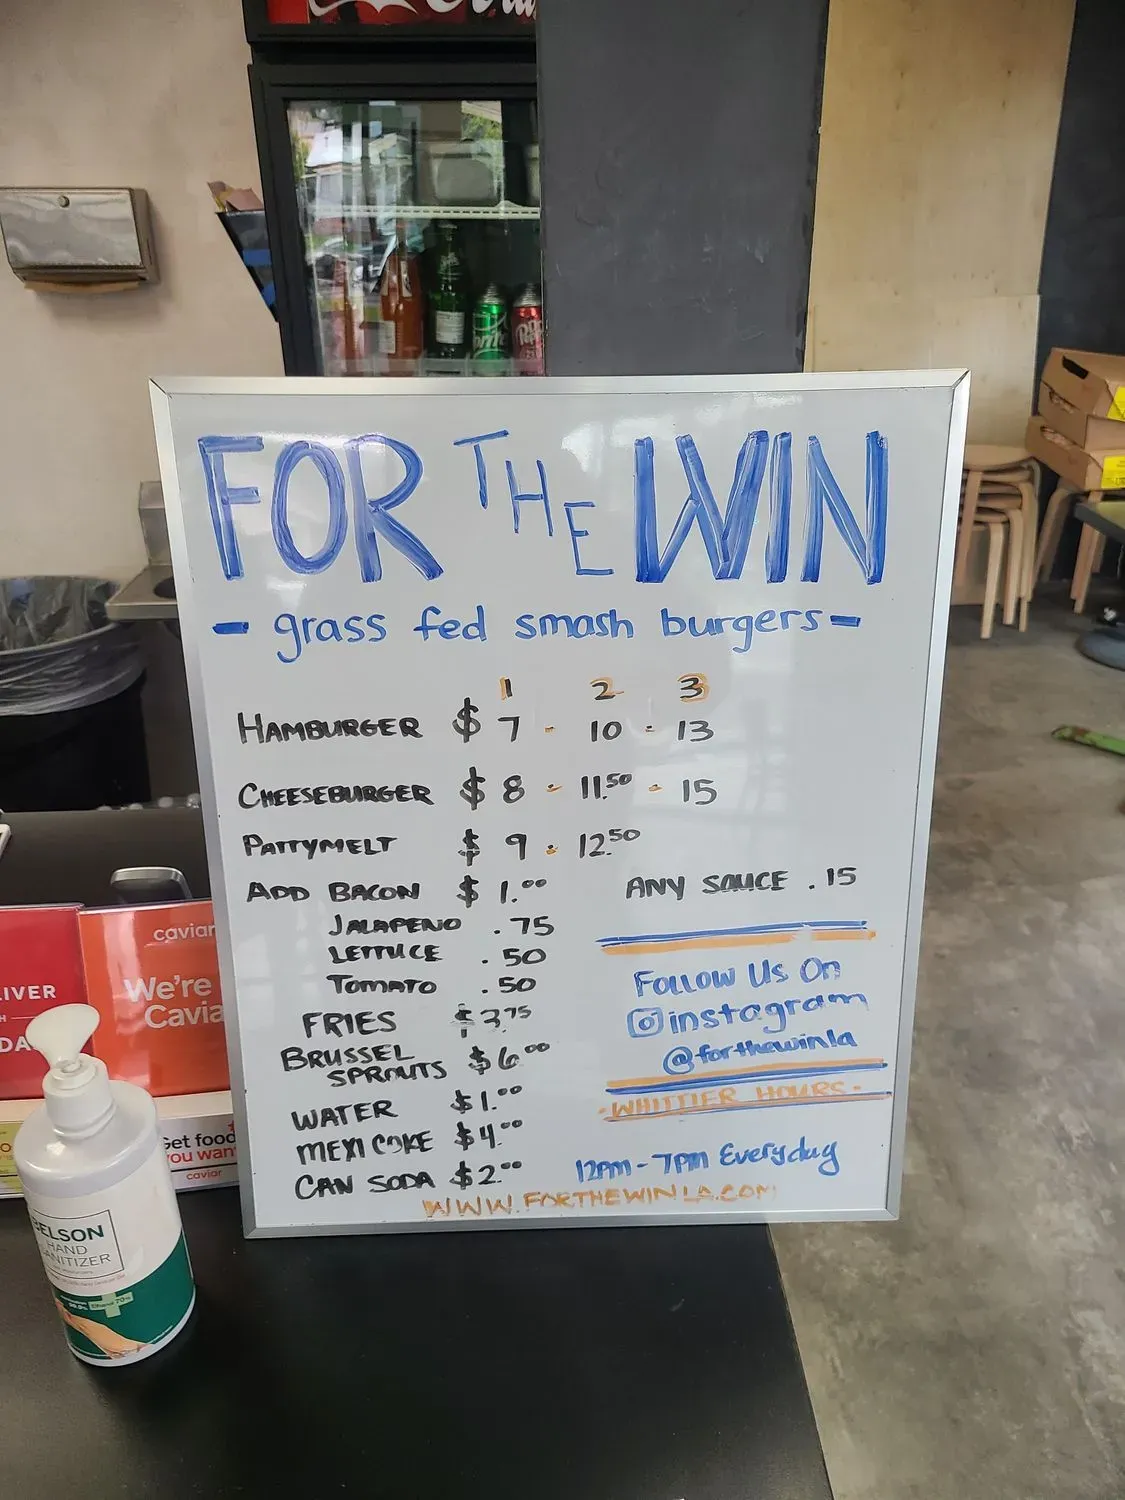 FOR THE WIN
- grass fed smash burgers -
1 2 3
HAMBURGER $ 7 - 10 - 13
CHEESEBURGER $ 8 - 11.50 - 15
PATTYMELT $ 9 - 12.50
ADD BACON $ 1.00
JALAPENO .75
LETTUCE .50
TOMATO .50
FRIES $3.75
BRUSSEL
SPROUTS $6.00
WATER $1.00
MEXI COKE $4.00
CAN SODA $2.00
ANY SAUCE .15
FOLLOW US ON
instagram
@forthewinla
-WHITTIER HOURS-
12PM - 7PM Everyday
WWW.FORTHEWINLA.COM
Sprite
caviar
We're
Cavia
Get food
you want
caviar
LIVER
BELSON
HAND
SANITIZER